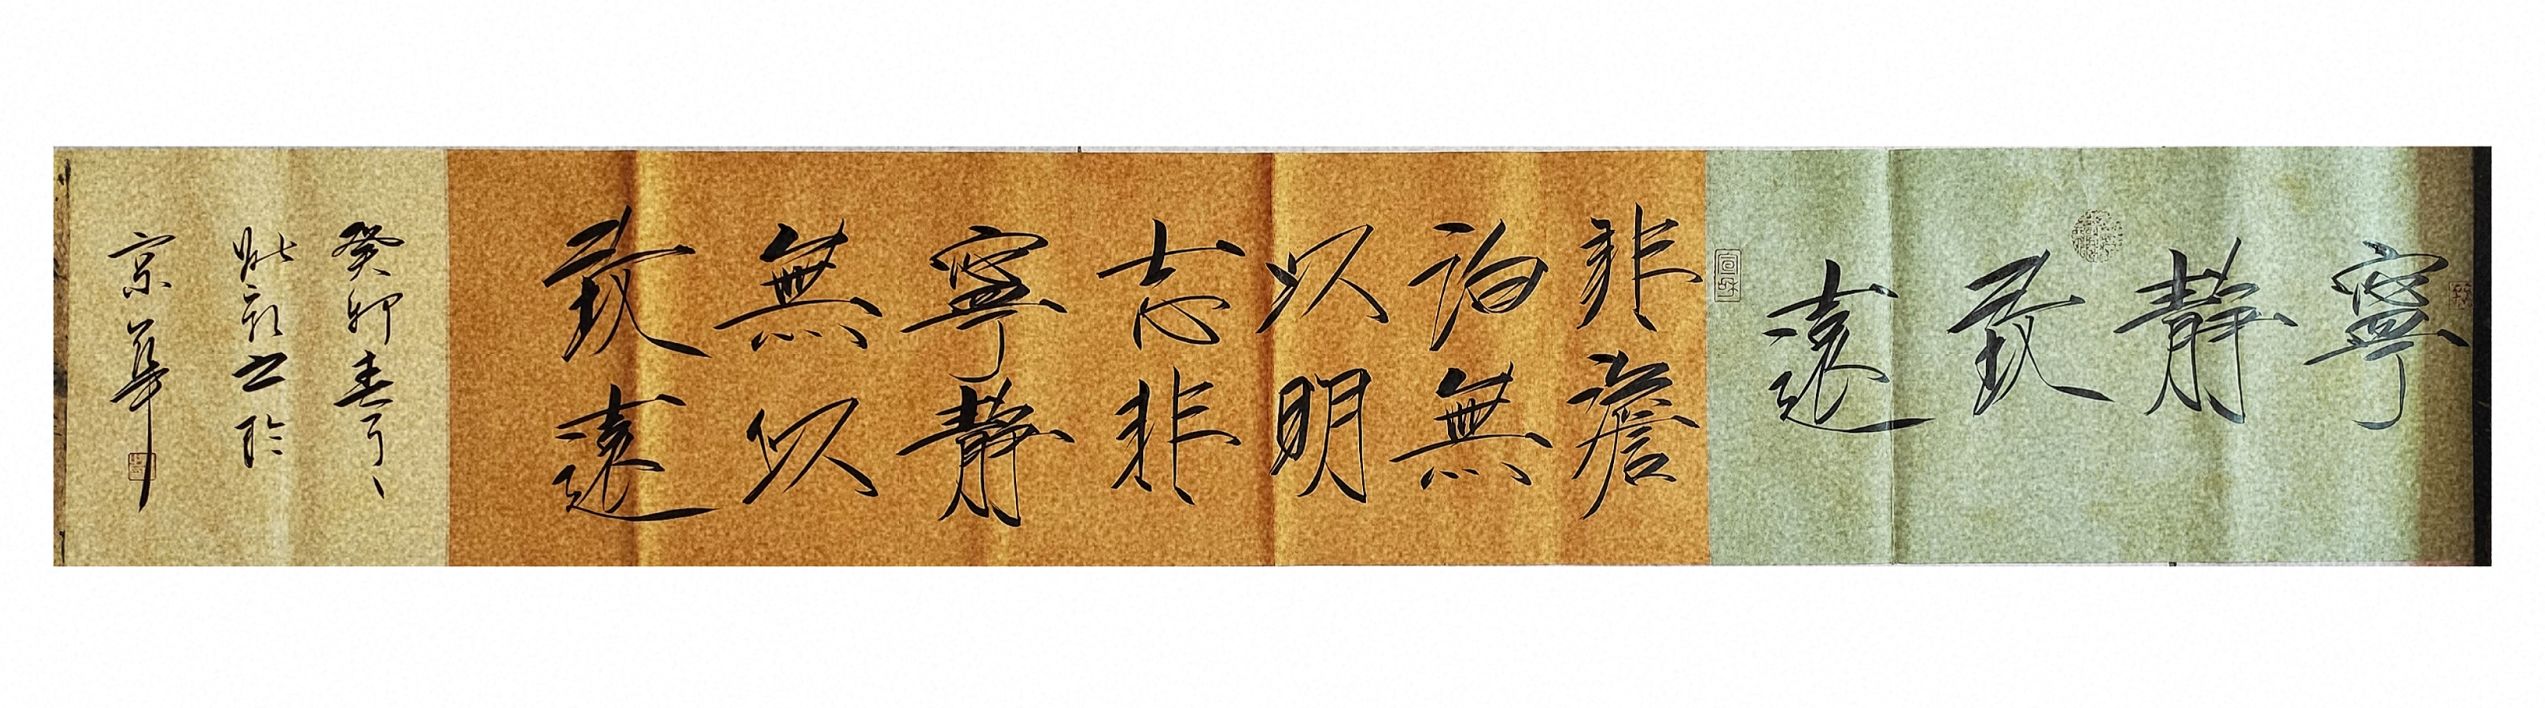 寧靜致遠
宣和
非澹
泊無
以明
志非
寧靜
無以
致遠
癸卯春
書於
京華